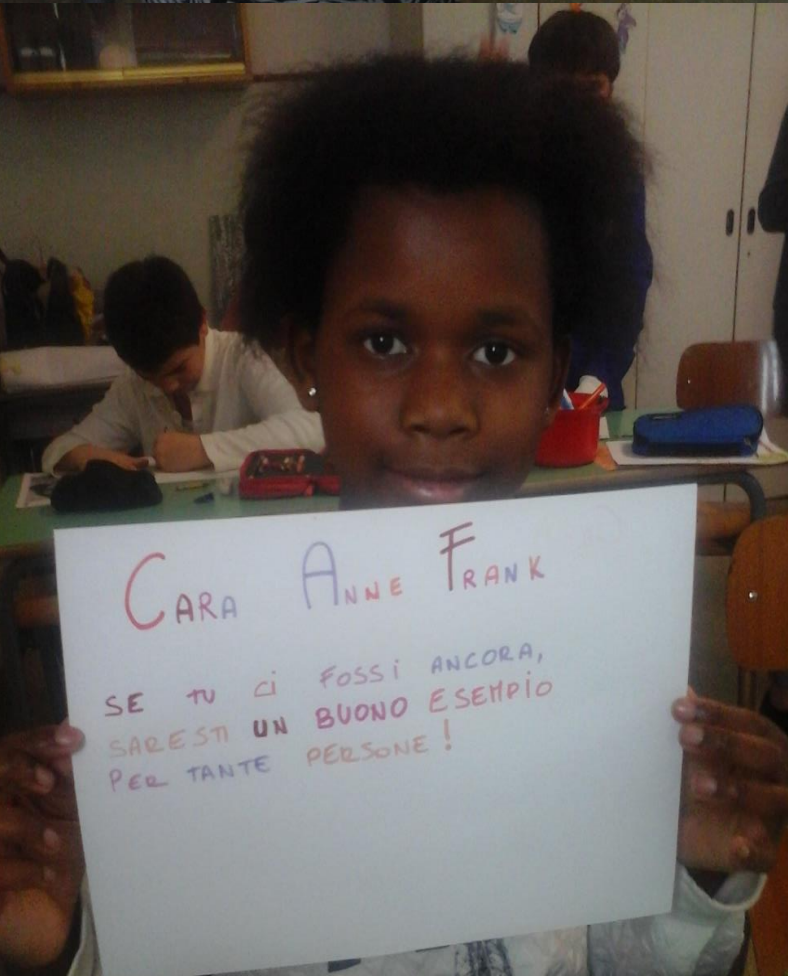 CARA ANNE FRANK
SE TU Ci FOSSi ANCORA,
SARESTI UN BUONO ESEMPIO
PER TANTE PERSONE!